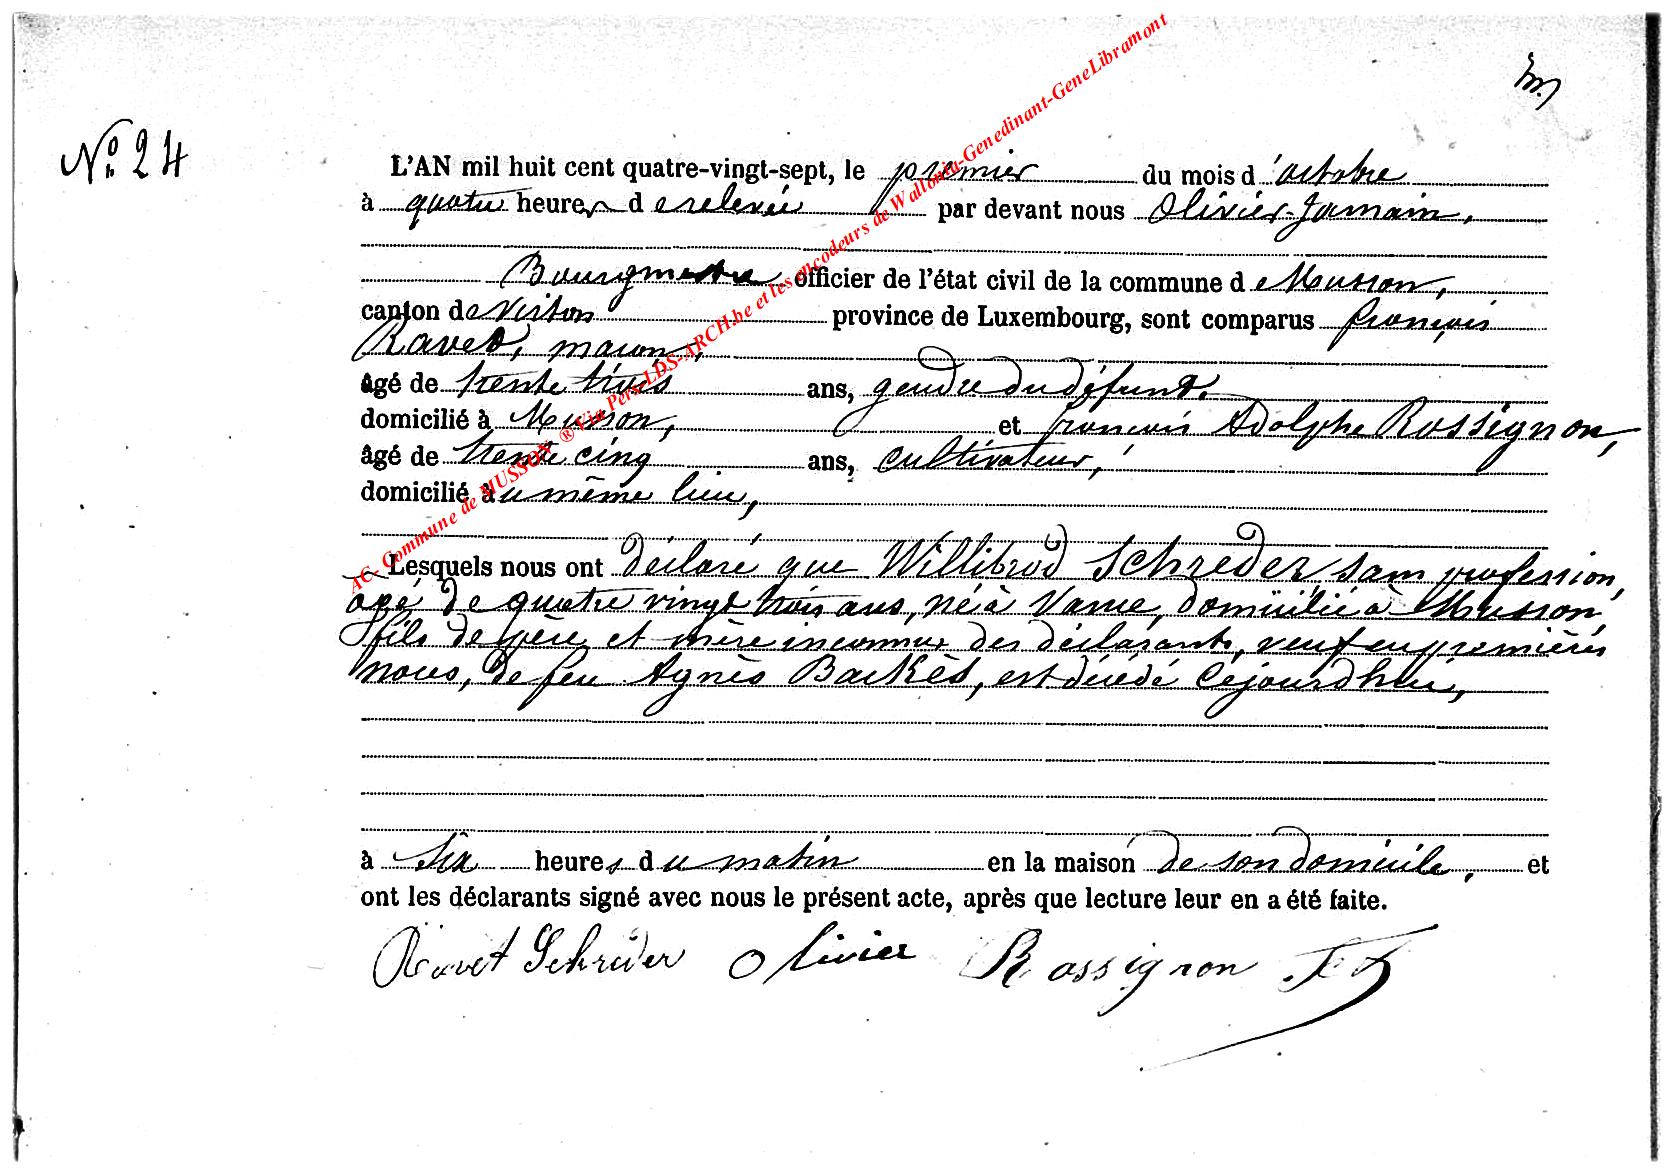 N° 24
L'AN mil huit cent quatre-vingt-sept, le premier du mois d'octobre
à quatre heures de relevée par devant nous Olivier Jamain,
Bourgmestre officier de l'état civil de la commune de Musson,
canton de Virton province de Luxembourg, sont comparus françois
Ravet, maçon,
âgé de trente trois ans, gendre du défunt.
domicilié à Musson, et françois Adolphe Rossignon,
âgé de trente cinq ans, cultivateur,
domicilié au même lieu,
Lesquels nous ont déclaré que Willibrod Schreder, sans profession,
agé de quatre vingt trois ans, né à Vance, domicilié à Musson,
fils de père et mère inconnus des déclarants, veuf en premières
noces, de feu Agnès Backès, est décédé cejourd'hui,
à six heures du matin en la maison de son domicile, et
ont les déclarants signé avec nous le présent acte, après que lecture leur en a été faite.
Ravet Schreder Olivier Rossignon
AC- Commune de MUSSON ® Via Pers-LDS-ARCH.be et les encodeurs de Wallonia-Genedinant-GeneLibramont